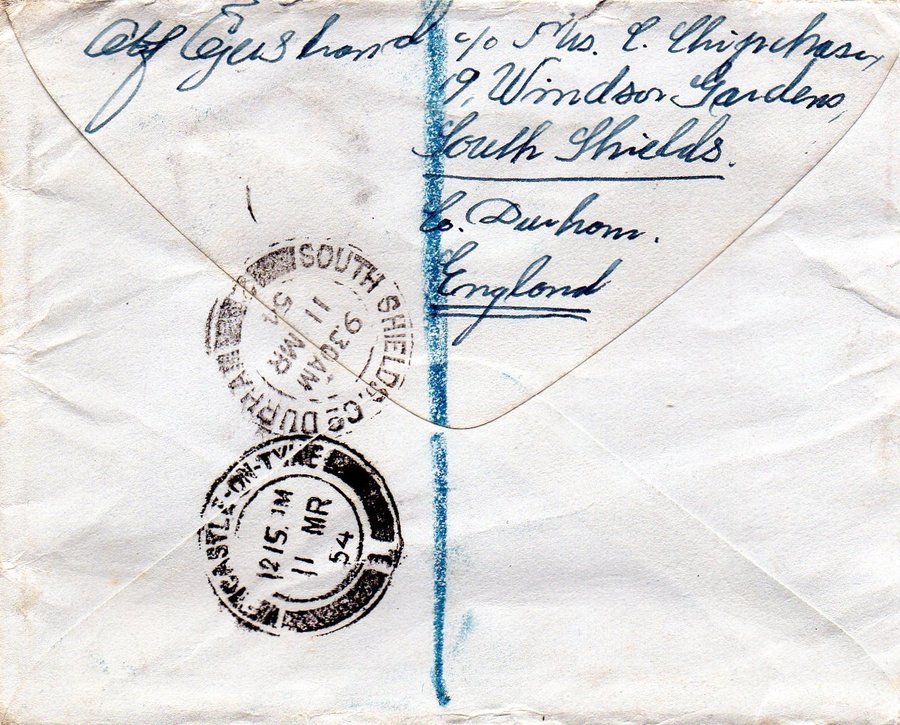 c/o Mrs. C. Chipchase,
19, Windsor Gardens,
South Shields.
Co. Durham.
England
SOUTH SHIELDS. CO DURHAM
9 30AM
11 MR
54
NEWCASTLE-ON-TYNE 1
1215. PM
11 MR
54